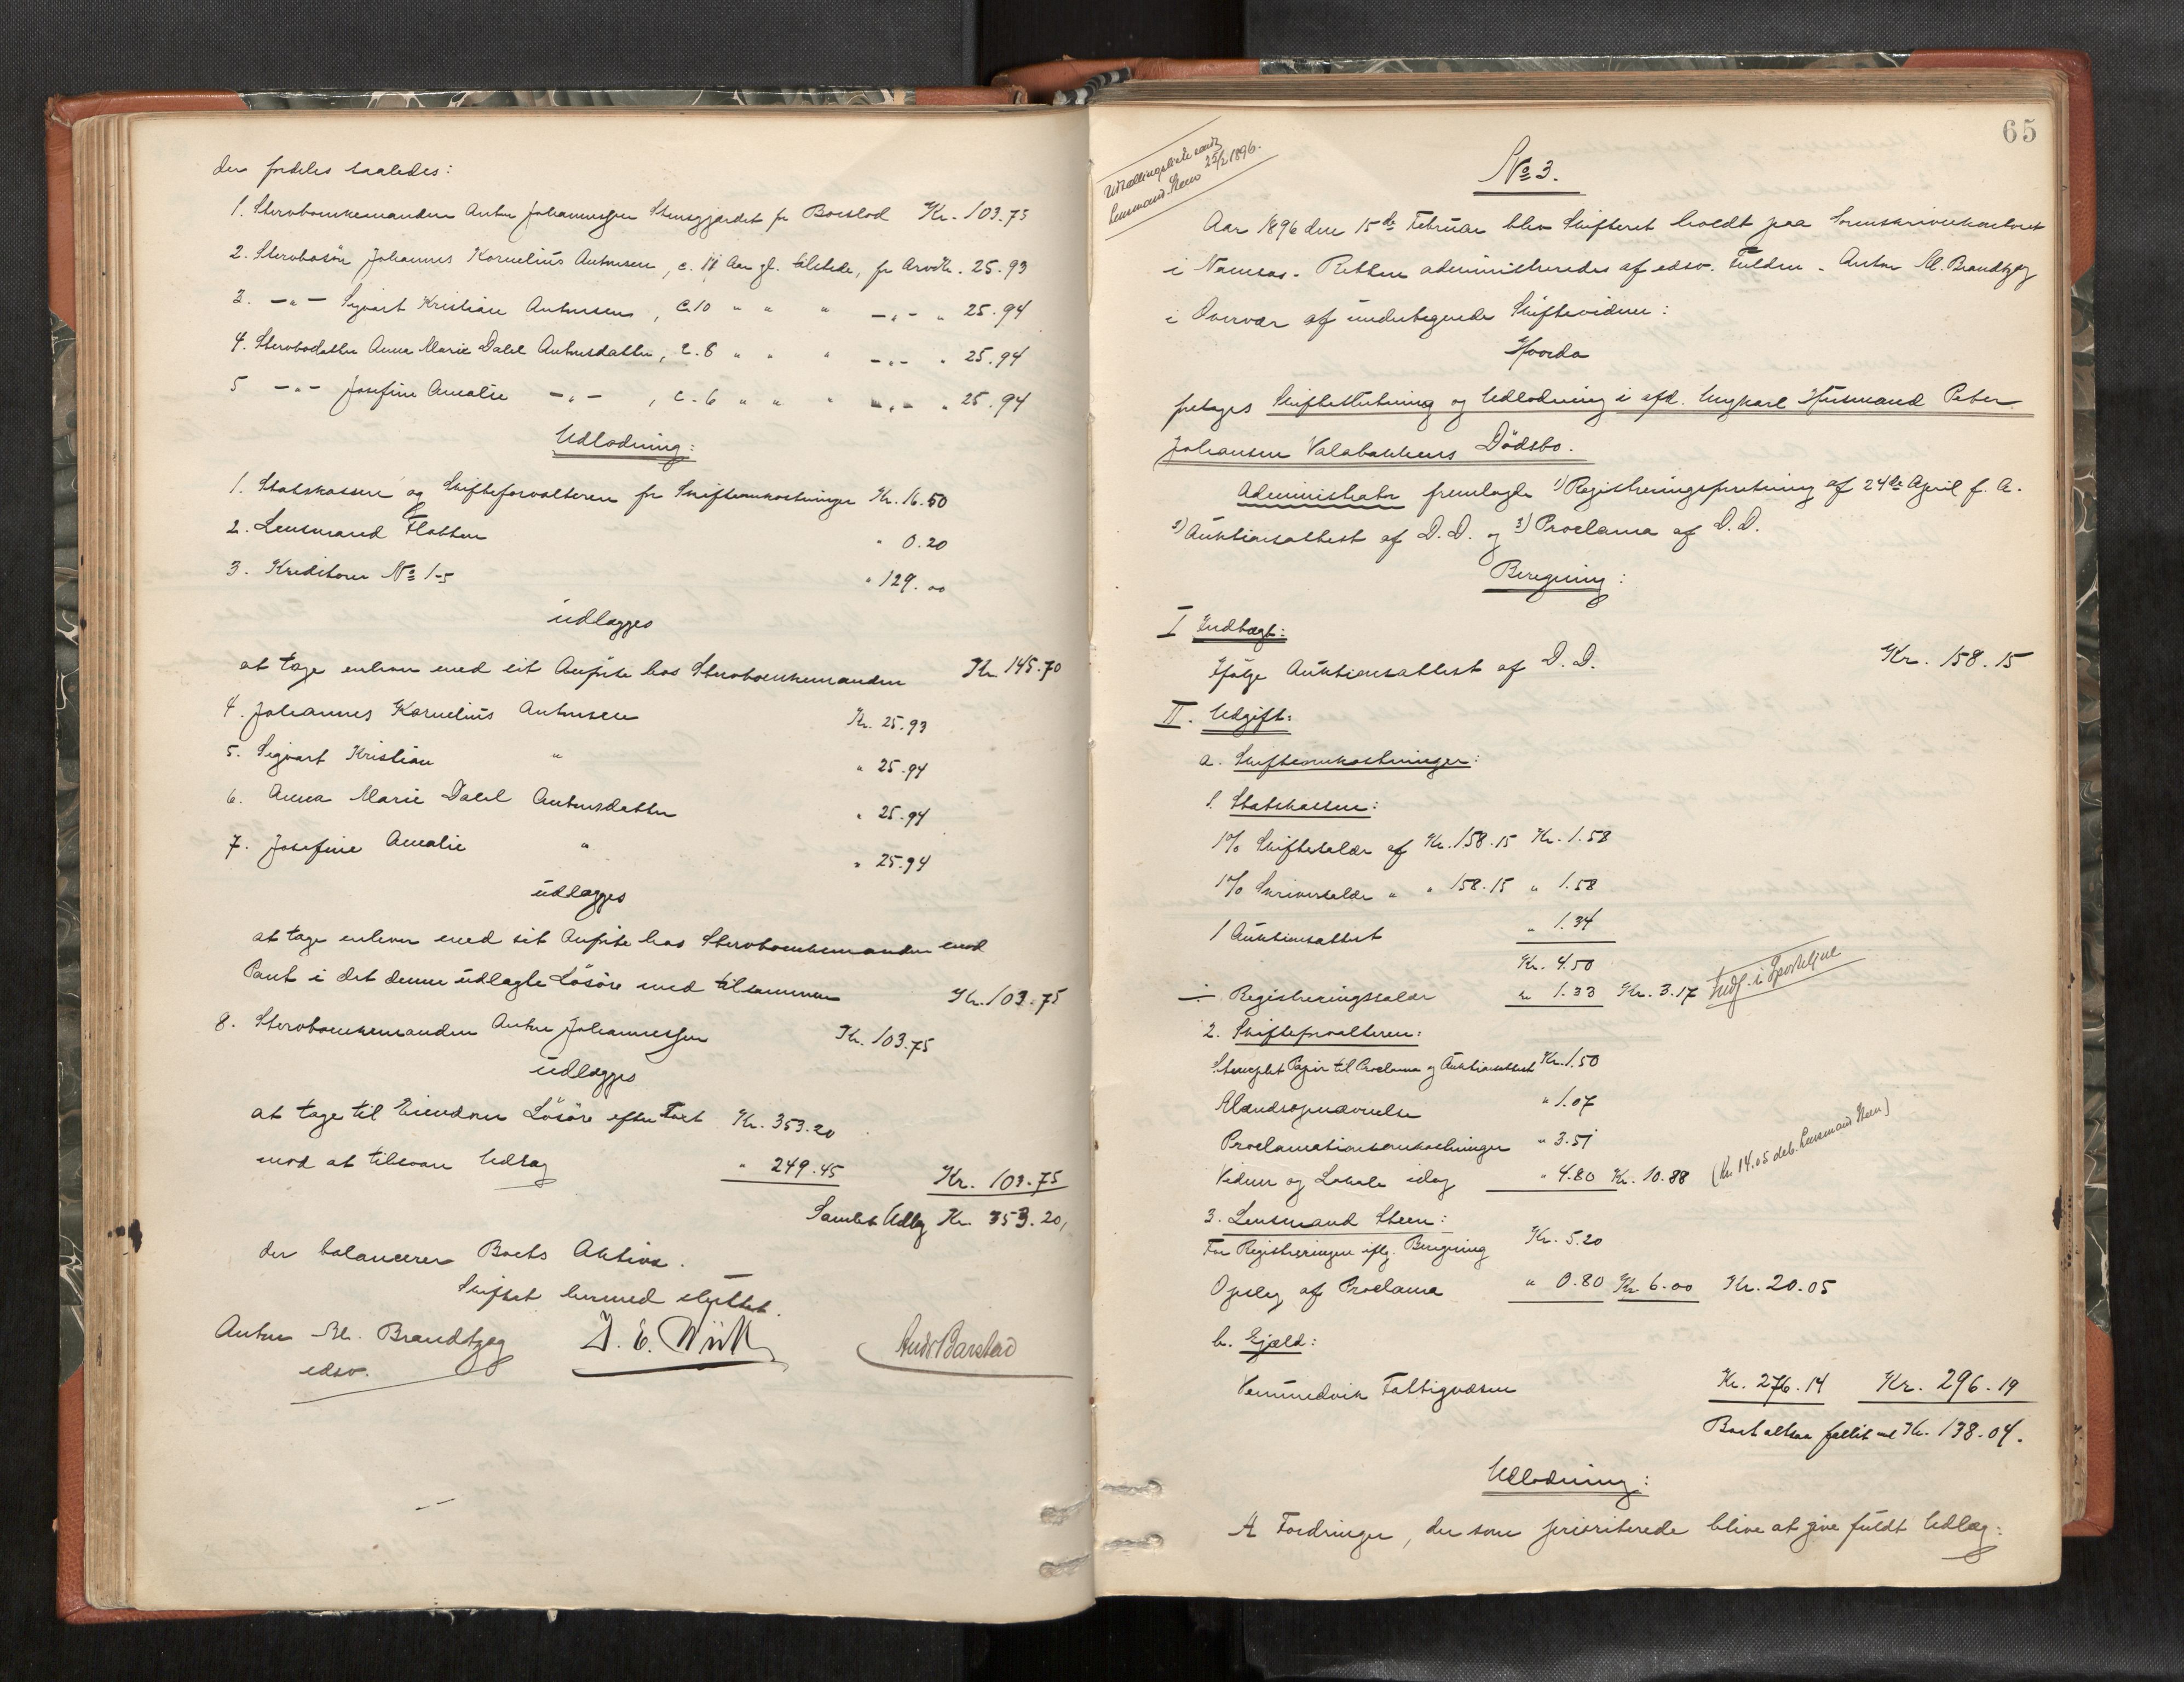 der fordeles saaledes:
1. Sterboenkemanden Anton Johannessen Stensgjerdet for Boeslod Kr. 103.75
2. Sterbosøn Johannes Kornelius Antonsen, c. 11 Aar gl. tilstede, for Arv Kr. 25.93
3. -"- Sigvart Kristian Antonsen, c. 10 " " " -"- " 25.94
4. Sterbodatter Anna Marie Dalil Antonsdatter, c. 8 " " " -"- " 25.94
5 -"- Josefine Amalie -"- , c. 6 " " " -"- " 25.94
Udlodning:
1. Statskassen og Skifteforvalteren for Skifteomkostninger Kr. 16.50
2. Lensmand Flotten " 0.20
3. Kreditorer No 1-5 " 129.00
udlægges
at tage enhver med sit Anpite hos Sterboenkemanden Kr. 145.70
4. Johannes Kornelius Antonsen Kr. 25.93
5. Sigvart Kristian " " 25.94
6. Anna Marie Dalil Antonsdatter " 25.94
7. Josefine Amalie " " 25.94
udlægges
at tage enhver med sit Anpite hos Sterboenkemanden mod
Pant i det denne udlagte Løsøre med tilsammen Kr. 103.75
8. Sterboenkemanden Anton Johannessen Kr. 103.75
udlægges
at tage til Eiendom Løsøre efter Taxt Kr. 353.20
mod at tilsvare Udlæg " 249.45 Kr. 103.75
Samlet Udlæg Kr. 353.20,
der balancerer Boets Aktiva.
Skiftet hermed sluttet.
Anton M. Brandtzæg
edsv.
And. Barstad
65
Lensmand Steen 25/2 1896.
No 3.
Aar 1896 den 15de Februar blev Skifteret holdt paa Sorenskriverkontoret
i Namsos. Retten administreredes af edsv. Fuldm. Anton M. Brandtzæg
i Overvær af undertegnede Skiftevidner:
Hvorda
foretoges Skifteslutning og Udlodning i afd. Ungkarl Husmand Peter
Johansen Valabakkens Dødsbo.
Administrator fremlagde 1) Registreringsforretning af 24de April f. A.
2) Auktionsattest af D.D. og 3) Proclama af D.D.
Beregning:
I Indtægt:
Ifølge Auktionsattest af D.D. Kr. 158.15
II. Udgift:
a. Skifteomkostninger:
1. Statskassen:
1% Skiftesalær af Kr. 158.15 Kr. 1.58
1% Skriversalær " " 158.15 " 1.58
1 Auktionsattest " 1.34
Kr. 4.50
÷ Registreringssalær " 1.33 Kr. 3.17 Indf. i Sporteljnl
2. Skifteforvalteren:
Stemplet Papir til Proclama og Auktionsattest Kr. 1.50
Mændsopnævnelse " 1.07
Proclamationsomkostninger " 3.51
Vidner og Lokale idag " 4.80 Kr. 10.88 (Kr. 14.05 deb. Lensmand Steen)
3. Lensmand Steen:
For Registreringen iflg. Beregning Kr. 5.20
Opslag af Proclama " 0.80 Kr. 6.00 Kr. 20.05
b. Gjæld:
Vemundvik Fattigvæsen Kr. 276.14 Kr. 296.19
Boet altsaa fallit med Kr. 138.04.
Udlodning:
A Fordringer, der som prioriterede blive at give fuldt Udlæg: